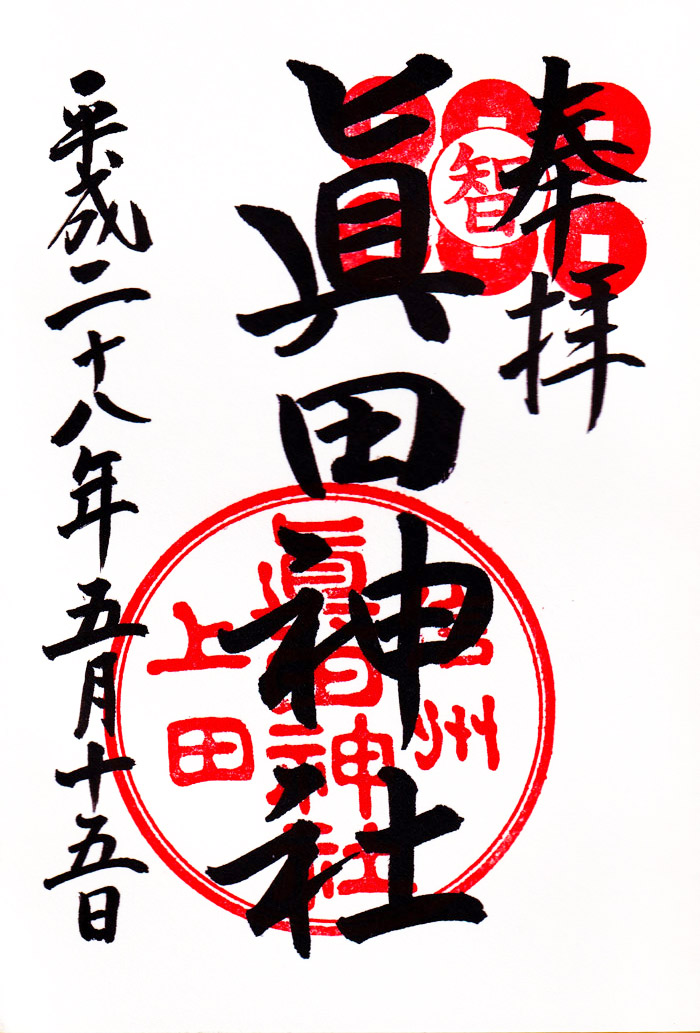 奉拝
智
眞田神社
信州
眞田神社
上田
平成二十八年五月十五日